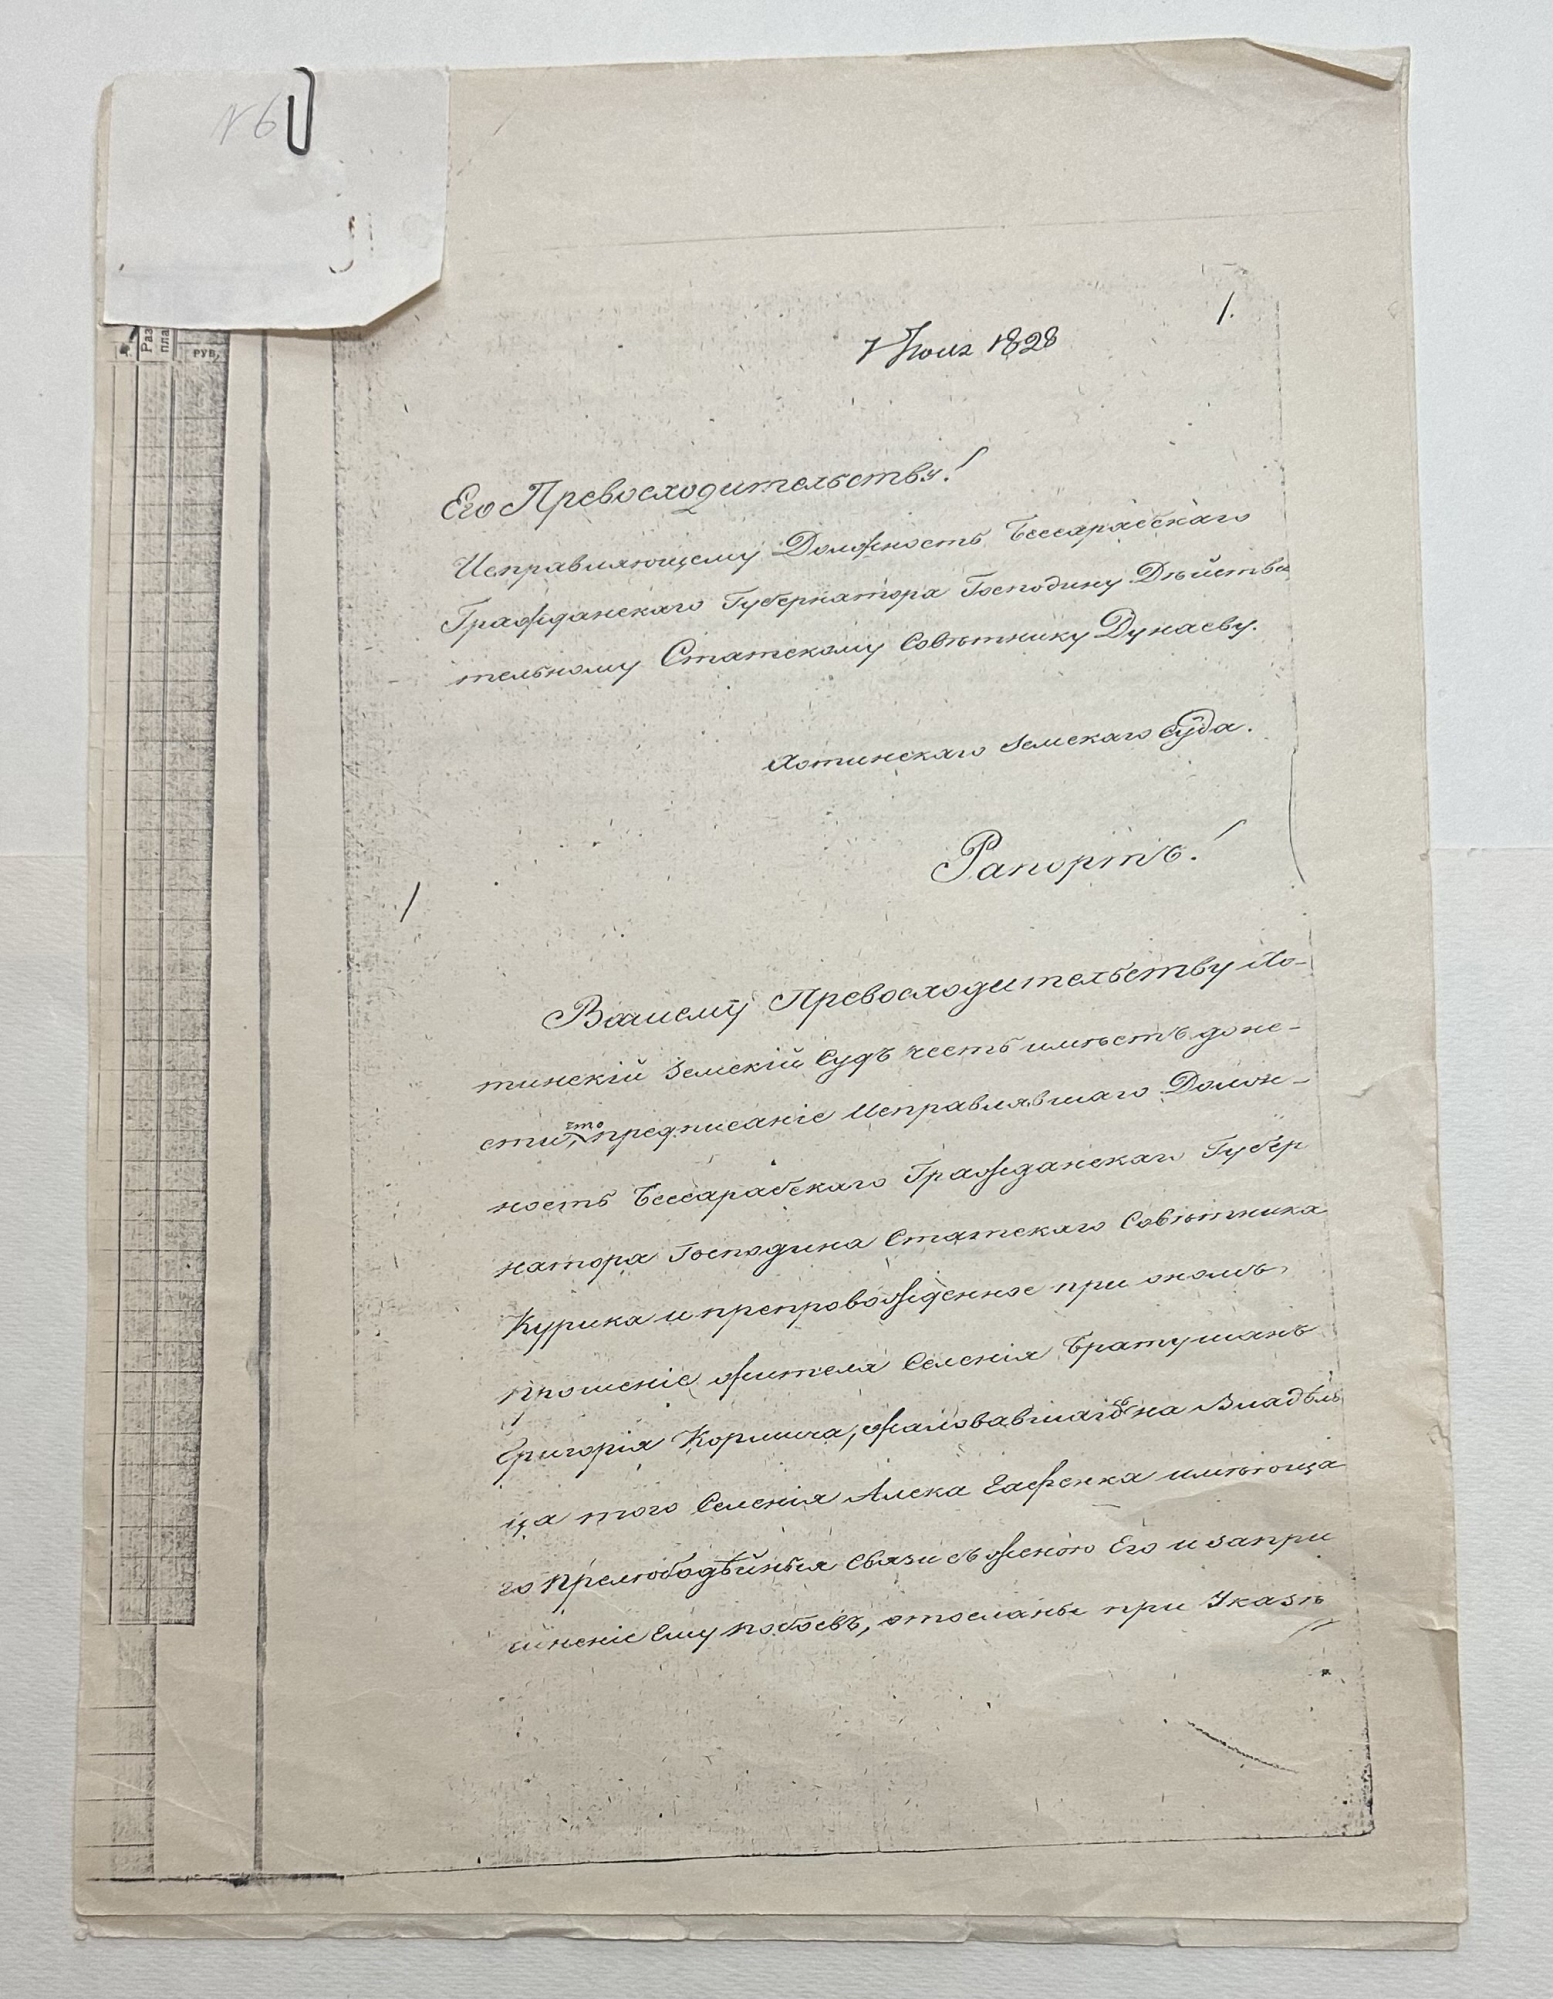 N 6
Раз
пла
РУБ.
1.
7 Июля 1828
Его Превосходительству!
Исправляющему Должность Бессарабскаго
Гражданскаго Губернатора Господину Дѣйстви
тельному Статскому Совѣтнику Дунаеву.
Хотинскаго Земскаго Суда.
Рапортъ!
Вашему Превосходительству Хо-
тинскій Земскій Судъ честь имѣетъ доне-
сти, что предписаніе Исправлявшаго Долж-
ность Бессарабскаго Гражданскаго Губер
натора Господина Статскаго Совѣтника
Курика и препровожденное при ономъ
прошеніе жителя Селенія Братушанъ
Григорія Кормича, жаловавшагося на Владѣль
ца того Селенія Алека имѣюща
го прелюбодѣйныя связи съ женою Его и запри
чиненіе Ему побоевъ, отосланы при Указѣ